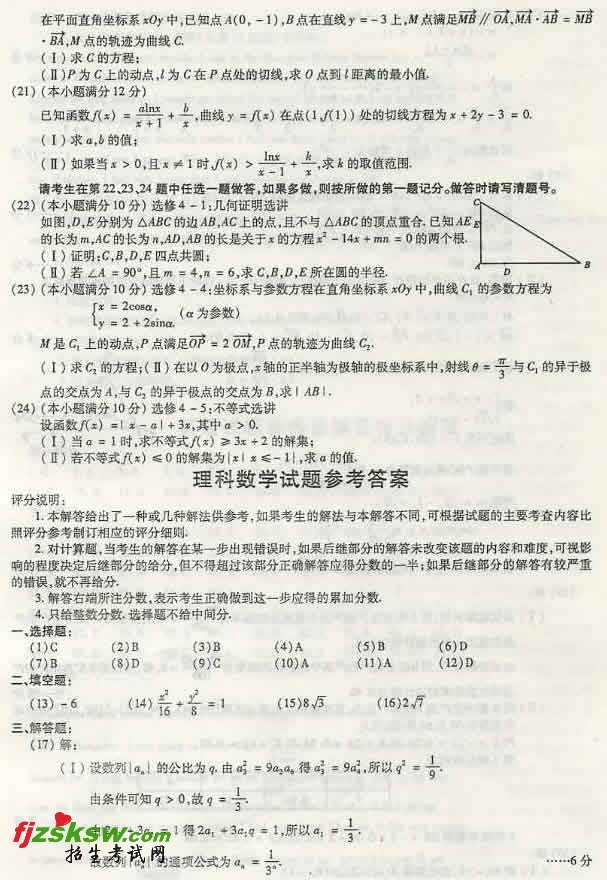 在平面直角坐标系xOy中,已知点A(0,-1),B点在直线y=-3上,M点满足MB∥OA,MA·AB=MB
·BA,M点的轨迹为曲线C.
(Ⅰ)求C的方程;
(Ⅱ)P为C上的动点,l为C在P点处的切线,求O点到l距离的最小值.
(21)(本小题满分12分)
已知函数f(x)=alnx/(x+1)+b/x,曲线y=f(x)在点(1,f(1))处的切线方程为x+2y-3=0.
(Ⅰ)求a,b的值;
(Ⅱ)如果当x>0,且x≠1时,f(x)>lnx/(x-1)+k/x,求k的取值范围.
请考生在第22、23、24题中任选一题做答,如果多做,则按所做的第一题记分。做答时请写清题号。
(22)(本小题满分10分)选修4-1:几何证明选讲
如图,D,E分别为△ABC的边AB,AC上的点,且不与△ABC的顶点重合.已知AE
的长为m,AC的长为n,AD,AB的长是关于x的方程x²-14x+mn=0的两个根.
(Ⅰ)证明:C,B,D,E四点共圆;
(Ⅱ)若∠A=90°,且m=4,n=6,求C,B,D,E所在圆的半径.
C
E
A
D
B
(23)(本小题满分10分)选修4-4:坐标系与参数方程在直角坐标系xOy中,曲线C₁的参数方程为
{x=2cosα,
y=2+2sinα. (α为参数)
M是C₁上的动点,P点满足OP=2OM,P点的轨迹为曲线C₂.
(Ⅰ)求C₂的方程;(Ⅱ)在以O为极点,x轴的正半轴为极轴的极坐标系中,射线θ=π/3与C₁的异于极
点的交点为A,与C₂的异于极点的交点为B,求|AB|.
(24)(本小题满分10分)选修4-5:不等式选讲
设函数f(x)=|x-a|+3x,其中a>0.
(Ⅰ)当a=1时,求不等式f(x)≥3x+2的解集;
(Ⅱ)若不等式f(x)≤0的解集为{x|x≤-1},求a的值.
理科数学试题参考答案
评分说明:
1.本解答给出了一种或几种解法供参考,如果考生的解法与本解答不同,可根据试题的主要考查内容比
照评分参考制订相应的评分细则.
2.对计算题,当考生的解答在某一步出现错误时,如果后继部分的解答未改变该题的内容和难度,可视影
响的程度决定后继部分的给分,但不得超过该部分正确解答应得分数的一半;如果后继部分的解答有较严重
的错误,就不再给分.
3.解答右端所注分数,表示考生正确做到这一步应得的累加分数.
4.只给整数分数.选择题不给中间分.
一、选择题:
(1)C (2)B (3)B (4)A (5)B (6)D
(7)B (8)D (9)C (10)A (11)A (12)D
二、填空题:
(13)-6 (14)x²/16+y²/8=1 (15)8√3 (16)2√7
三、解答题:
(17)解:
(Ⅰ)设数列{aₙ}的公比为q.由a₃²=9a₂a₆得a₃²=9a₄²,所以q²=1/9.
由条件可知q>0,故q=1/3.
由2a₁+3a₂=1得2a₁+3a₁q=1,所以a₁=1/3.
故数列{aₙ}的通项公式为aₙ=1/3ⁿ. ……6分
fjzsksw.com
招生考试网